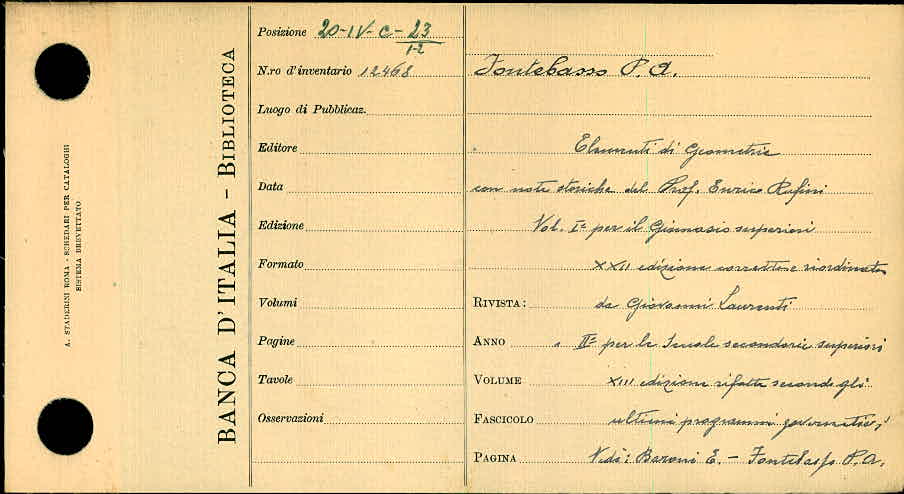 A. STADERINI ROMA - SCHEDARI PER CATALOGHI
SISTEMA BREVETTATO
BANCA D'ITALIA - BIBLIOTECA
Posizione 20-IV-C-23
1-2
N.ro d'inventario 12468
Luogo di Pubblicaz.
Editore
Data
Edizione
Formato
Volumi
Pagine
Tavole
Osservazioni
Fontebasso P. A.
Elementi di Geometria
con note storiche del Prof. Enrico Rufini
Vol. I° per il Ginnasio superiori
XXII edizione corretta e riordinata
RIVISTA: da Giovanni Laurenti
ANNO " II° per le Scuole secondarie superiori
VOLUME XIII edizione rifatta secondo gli
FASCICOLO ultimi programmi governativi
PAGINA Vedi: Baroni E. - Fontebasso P. A.